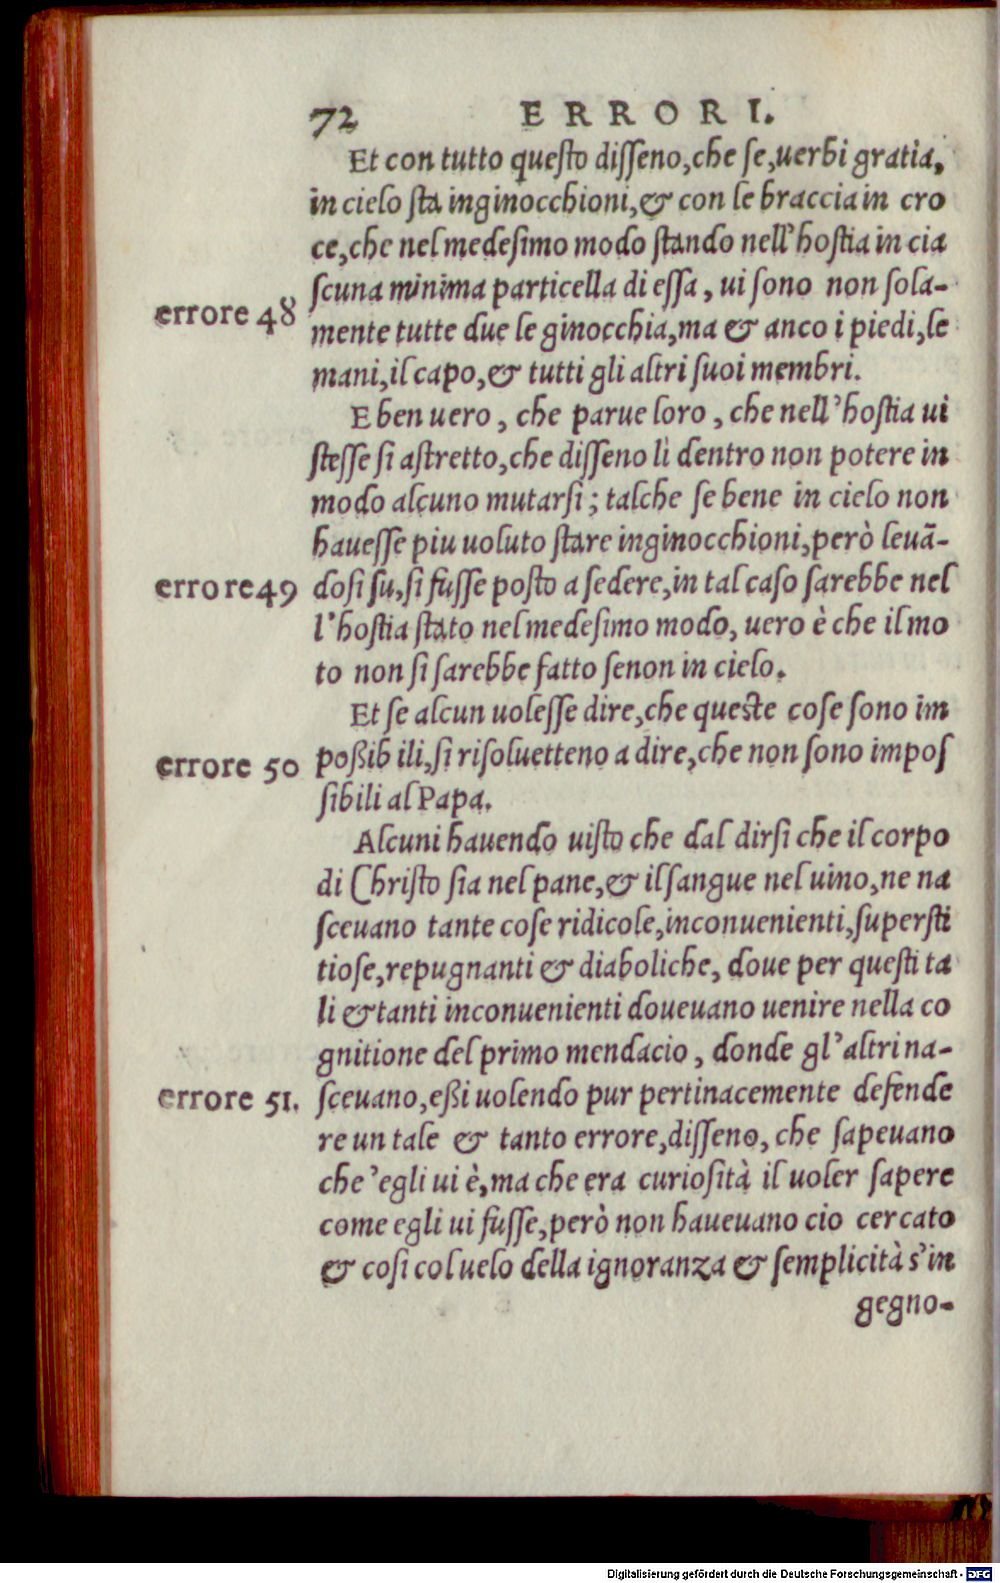 72 ERRORI.
Et con tutto questo disseno,che se,uerbi gratia,
in cielo sta inginocchioni,& con le braccia in cro
ce,che nel medesimo modo stando nell'hostia in cia
scuna minima particella di essa, ui sono non sola-
errore 48
mente tutte due le ginocchia,ma & anco i piedi,le
mani,il capo,& tutti gli altri suoi membri.
E ben uero, che parue loro, che nell'hostia ui
stesse si astretto,che disseno lì dentro non potere in
modo alcuno mutarsi; talche se bene in cielo non
hauesse piu uoluto stare inginocchioni,però leuā-
errore49
dosi su,si fusse posto a sedere,in tal caso sarebbe nel
l'hostia stato nel medesimo modo, uero è che il mo
to non si sarebbe fatto senon in cielo.
Et se alcun uolesse dire,che queste cose sono im
errore 50
poßib ili,si risoluetteno a dire,che non sono impos
sibili al Papa.
Alcuni hauendo uisto che dal dirsi che il corpo
di Christo sia nel pane,& il sangue nel uino,ne na
sceuano tante cose ridicole,inconuenienti,supersti
tiose,repugnanti & diaboliche, doue per questi ta
li & tanti inconuenienti doueuano uenire nella co
gnitione del primo mendacio, donde gl'altri na-
errore 51.
sceuano,eßi uolendo pur pertinacemente defende
re un tale & tanto errore,disseno, che sapeuano
che'egli ui è,ma che era curiosità il uoler sapere
come egli ui fusse,però non haueuano cio cercato
& cosi col uelo della ignoranza & semplicità s'in
gegno-
Digitalisierung gefördert durch die Deutsche Forschungsgemeinschaft - DFG